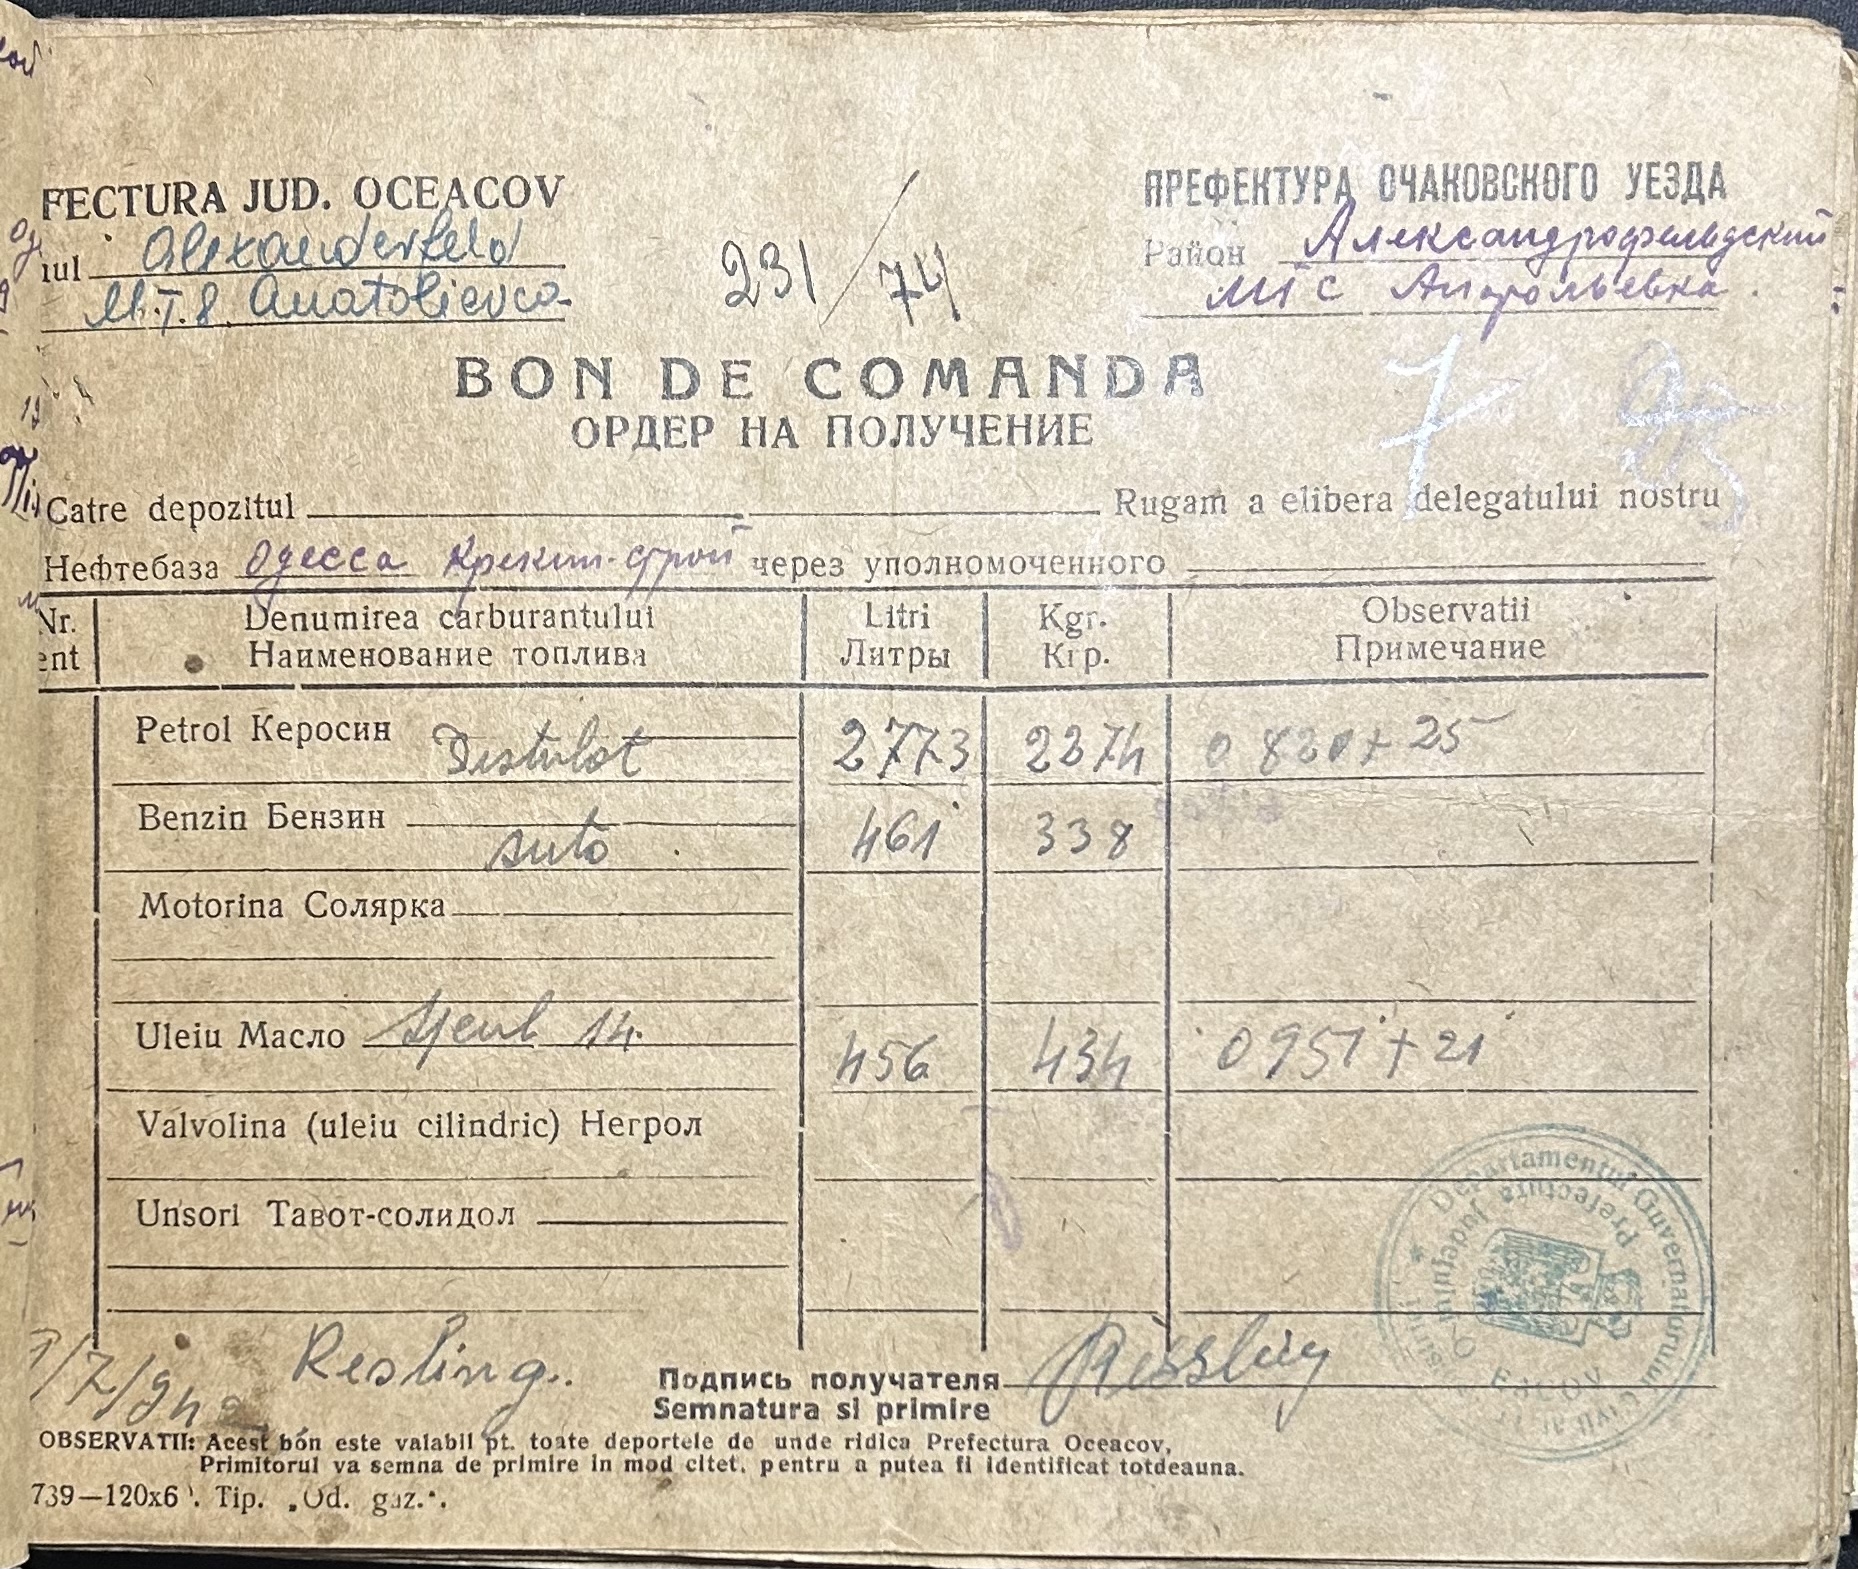 FECTURA JUD. OCEACOV
ПРЕФЕКТУРА ОЧАКОВСКОГО УЕЗДА
iul Alexanderfeld
Район Александрофельдский
M.T.S. Anatolievca
МТС Анатольевка.
231/74
BON DE COMANDA
ОРДЕР НА ПОЛУЧЕНИЕ
Catre depozitul Rugam a elibera delegatului nostru
Нефтебаза Одесса Крекин-строй через уполномоченного
Nr. Denumirea carburantului Litri Kgr. Observatii
ent Наименование топлива Литры Кгр. Примечание
Petrol Керосин Distulat 2773 2274 0 820 + 25
Benzin Бензин auto 461 338
Motorina Солярка
Uleiu Масло 14. 456 434 0951 + 21
Valvolina (uleiu cilindric) Негрол
Unsori Тавот-солидол
Departamentul Guvernatorului Civil
Prefectura Judeţului
/7/942 Resling. Подпись получателя Ressling
Semnatura si primire
OBSERVATII: Acest bon este valabil pt. toate deportele de unde ridica Prefectura Oceacov,
Primitorul va semna de primire in mod citet, pentru a putea fi identificat totdeauna.
739—120x6 . Tip. „Od. gaz.".